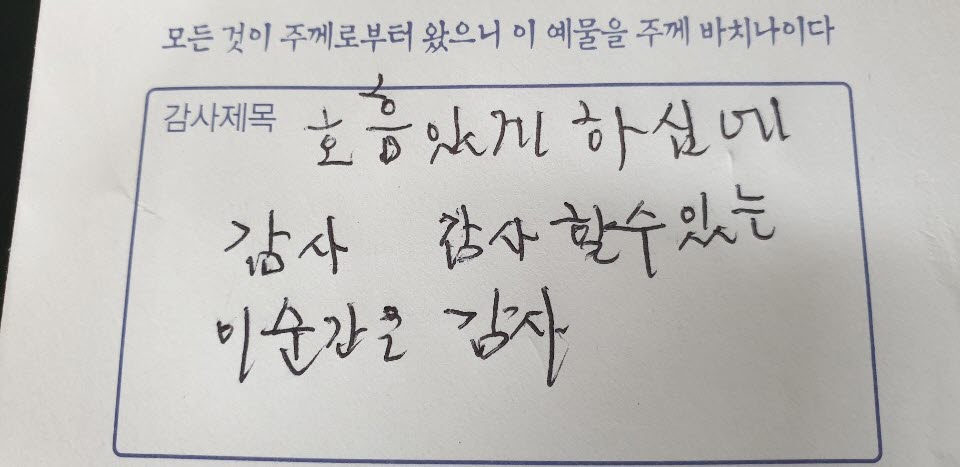 모든 것이 주께로부터 왔으니 이 예물을 주께 바치나이다
감사제목
호흡있게 하심에
감사 감사할수있는
이순간을 감사